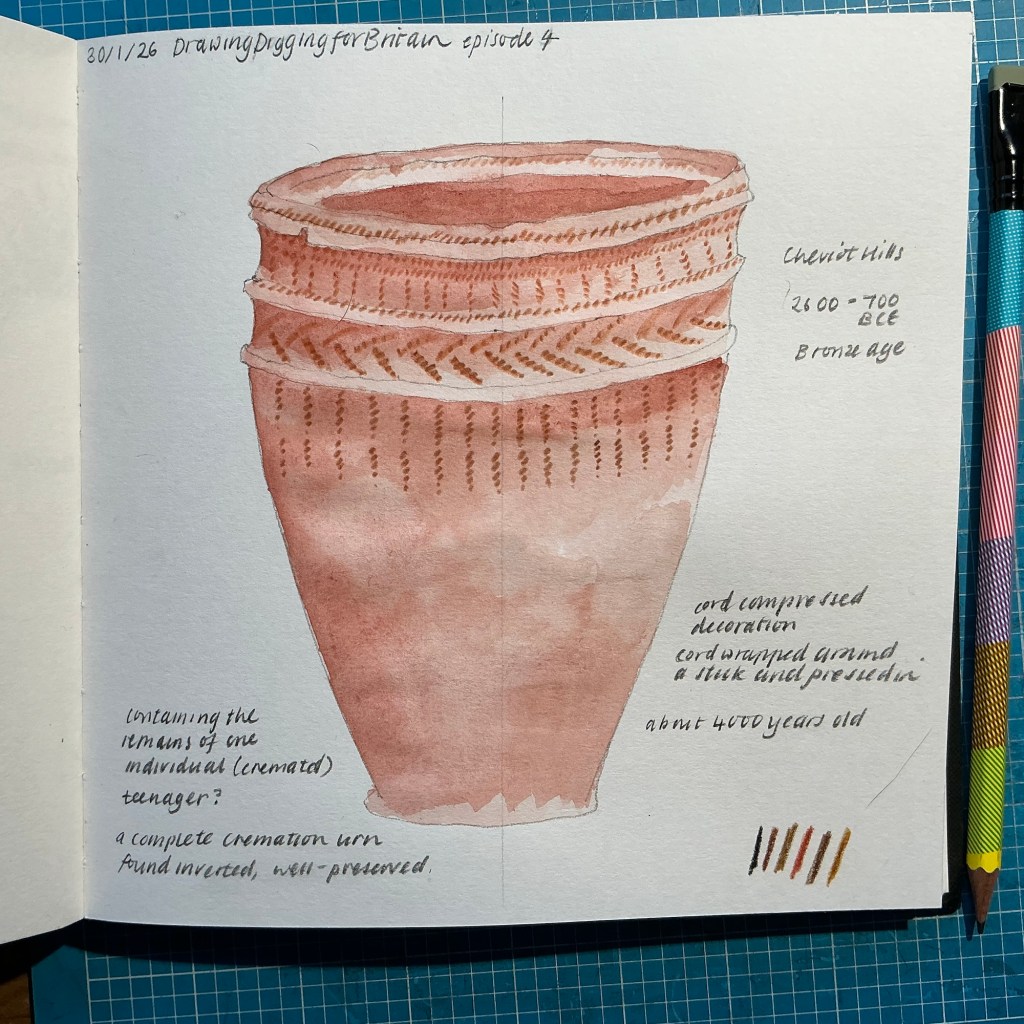 30/1/26 Drawing Digging for Britain episode 4
Cheviot Hills
2600 - 700
BCE
Bronze age
cord compressed
decoration
cord wrapped around
a stick and pressed in.
about 4000 years old
containing the
remains of one
individual (cremated)
teenager?
a complete cremation urn
found inverted, well-preserved.